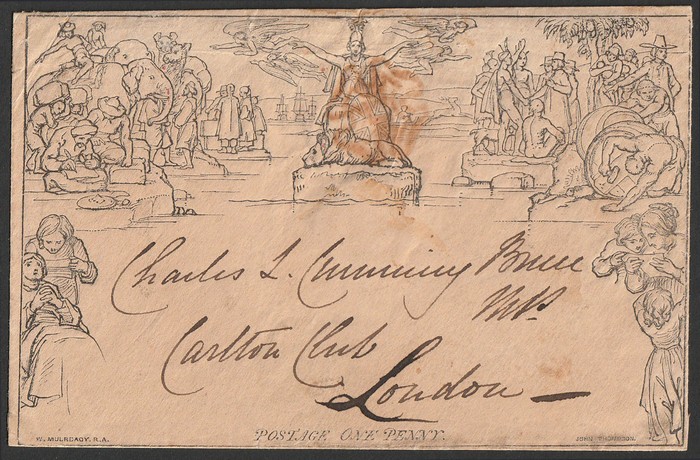 Charles L. Cumming Bruce
MP.
Carlton Club
London —
POSTAGE ONE PENNY.
W. MULREADY. R.A.
JOHN THOMPSON.